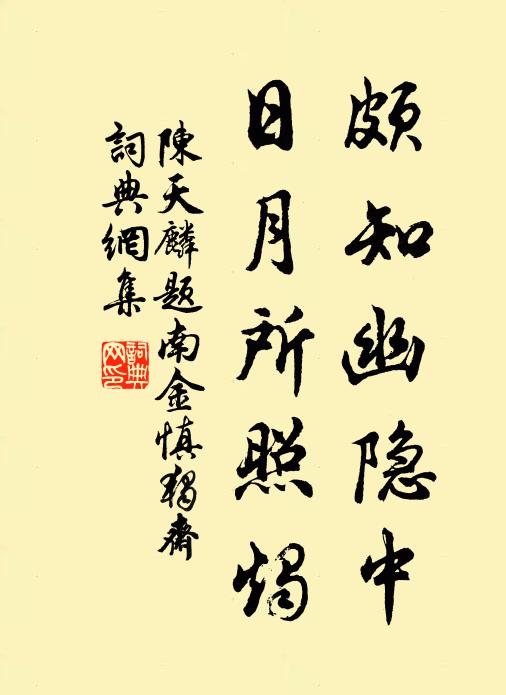 頗知幽隐中
日月所照燭
陳天麟題南金慎獨齋
詞典網集
詞典網印